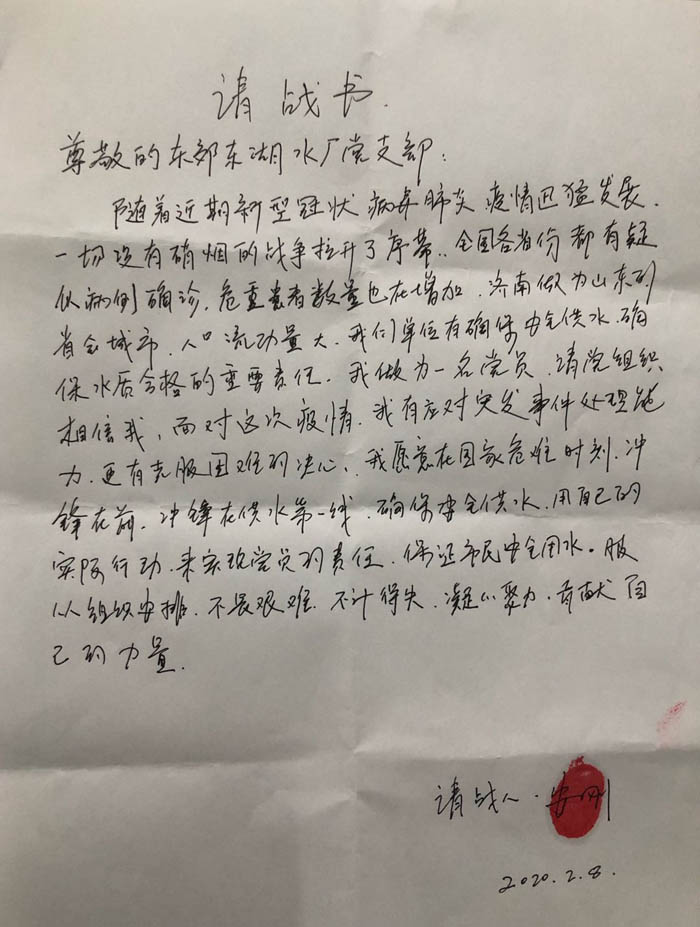 请战书.
尊敬的东郊东湖水厂党支部:
随着近期新型冠状病毒肺炎疫情迅猛发展.
一场没有硝烟的战争拉开了序幕..全国各省份都有疑
似病例确诊.危重患者数量也在增加.济南做为山东的
省会城市.人口流动量大.我们单位有确保安全供水.确
保水质合格的重要责任.我做为一名党员.请党组织
相信我,面对这次疫情.我有应对突发事件处理能
力.更有克服困难的决心、我愿意在国家危难时刻.冲
锋在前.冲锋在供水第一线.确保安全供水.用自己的
实际行动.来实现党员的责任.保证市民安全用水。服
从组织安排.不畏艰难.不计得失.凝心聚力.奉献自
己的力量.
请战人.安刚
2020.2.8.